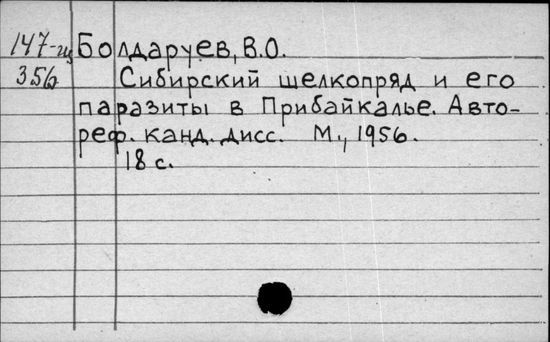 147-
356
Болдаруев, В.О.
Сибирский шелкопряд и его
паразиты в Прибайкалье. Авто-
реф. канд. дисс. М., 1956.
18 с.